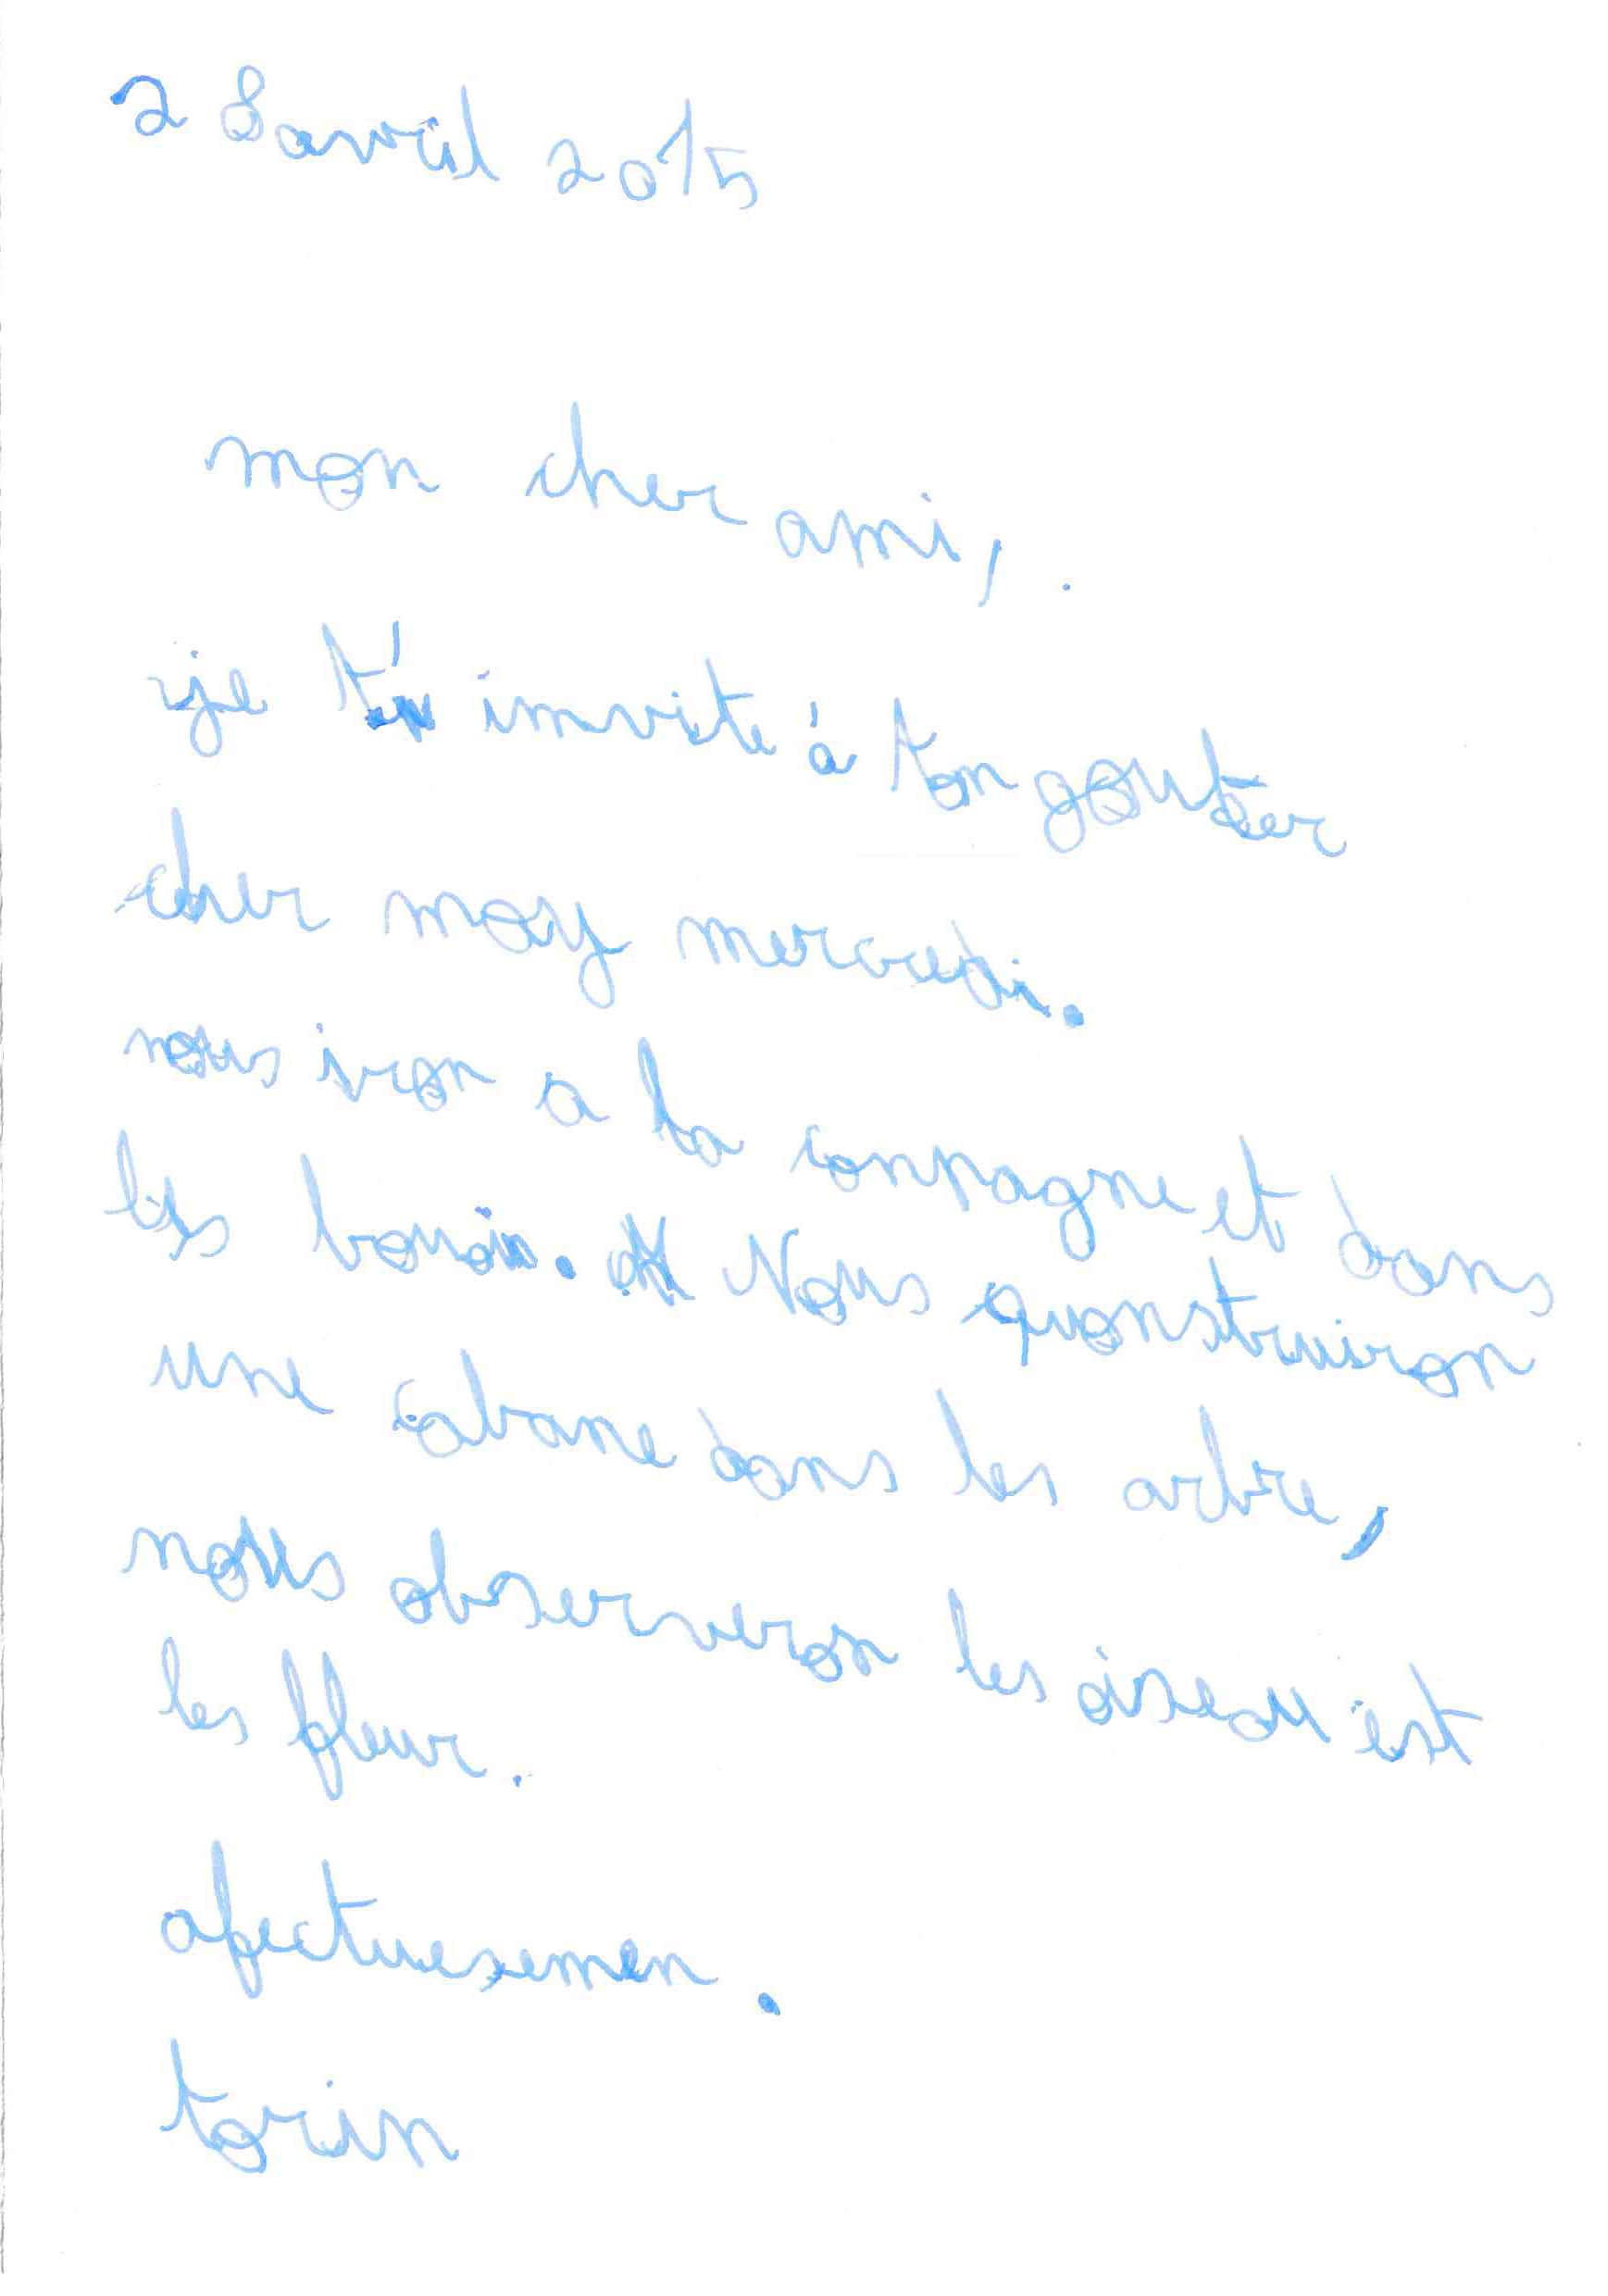 28 avril 2015
mon cher ami,.
je t' invite à ton gouter
cher moy mercredi.
nous iron a la conpagne et dans
les bouoi. Nous quonstruiron
une cabane dans les arbre,
nous observeron les oiseau est
les fleur.
afectuesemen.
torin